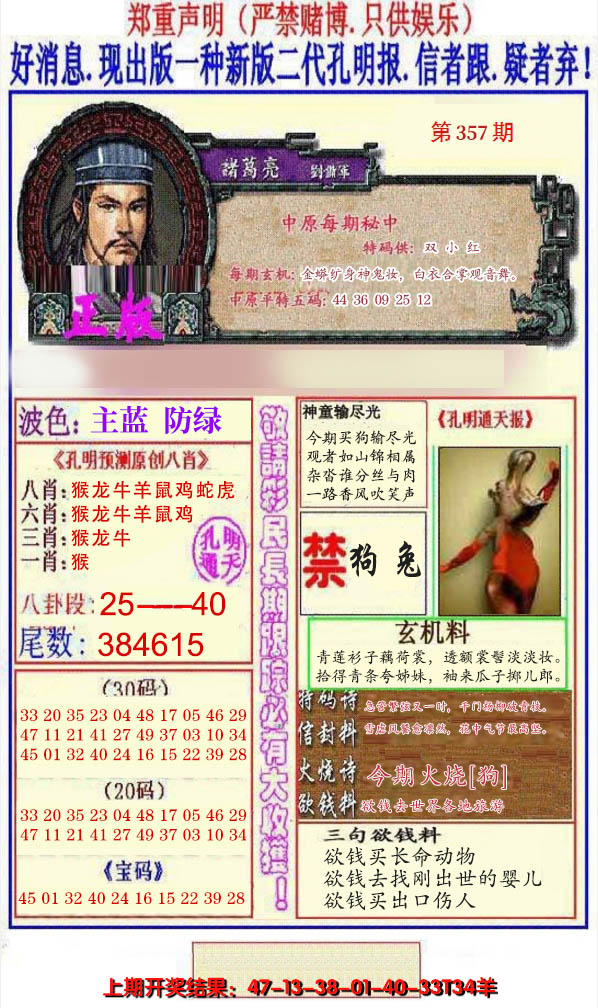 郑重声明（严禁赌博.只供娱乐）
好消息.现出版一种新版二代孔明报.信者跟.疑者弃！
第357期
諸葛亮 劉備軍
中原每期秘中
特码供: 双 小 红
每期玄机: 金蟒纩身神鬼妆，白衣合掌观音舞。
中原平特五码: 44 36 09 25 12
正版
波色: 主蓝 防绿
《孔明预测原创八肖》
八肖: 猴龙牛羊鼠鸡蛇虎
六肖: 猴龙牛羊鼠鸡
三肖: 猴龙牛
一肖: 猴
孔明
通天
八卦段: 25----40
尾数: 384615
(30码)
33 20 35 23 04 48 17 05 46 29
47 11 21 41 27 49 37 03 10 34
45 01 32 40 24 16 15 22 39 28
(20码)
33 20 35 23 04 48 17 05 46 29
47 11 21 41 27 49 37 03 10 34
《宝码》
45 01 32 40 24 16 15 22 39 28
敬請彩民長期跟踪必有大收獲！
神童输尽光
今期买狗输尽光
观者如山锦相属
杂沓谁分丝与肉
一路香风吹笑声
《孔明通天报》
禁 狗 兔
玄机料
青莲衫子藕荷裳，透额裳髻淡淡妆。
拾得青条夸姊妹，袖来瓜子掷儿郎。
特码诗 急管繁弦又一时，千门杨柳破青枝。
信封料 雪虐风饕愈凛然，花中气节最高坚。
火烧诗 今期火烧[狗]
欲钱料 欲钱去世界各地旅游
三句欲钱料
欲钱买长命动物
欲钱去找刚出世的婴儿
欲钱买出口伤人
上期开奖结果：47-13-38-01-40-33T34羊